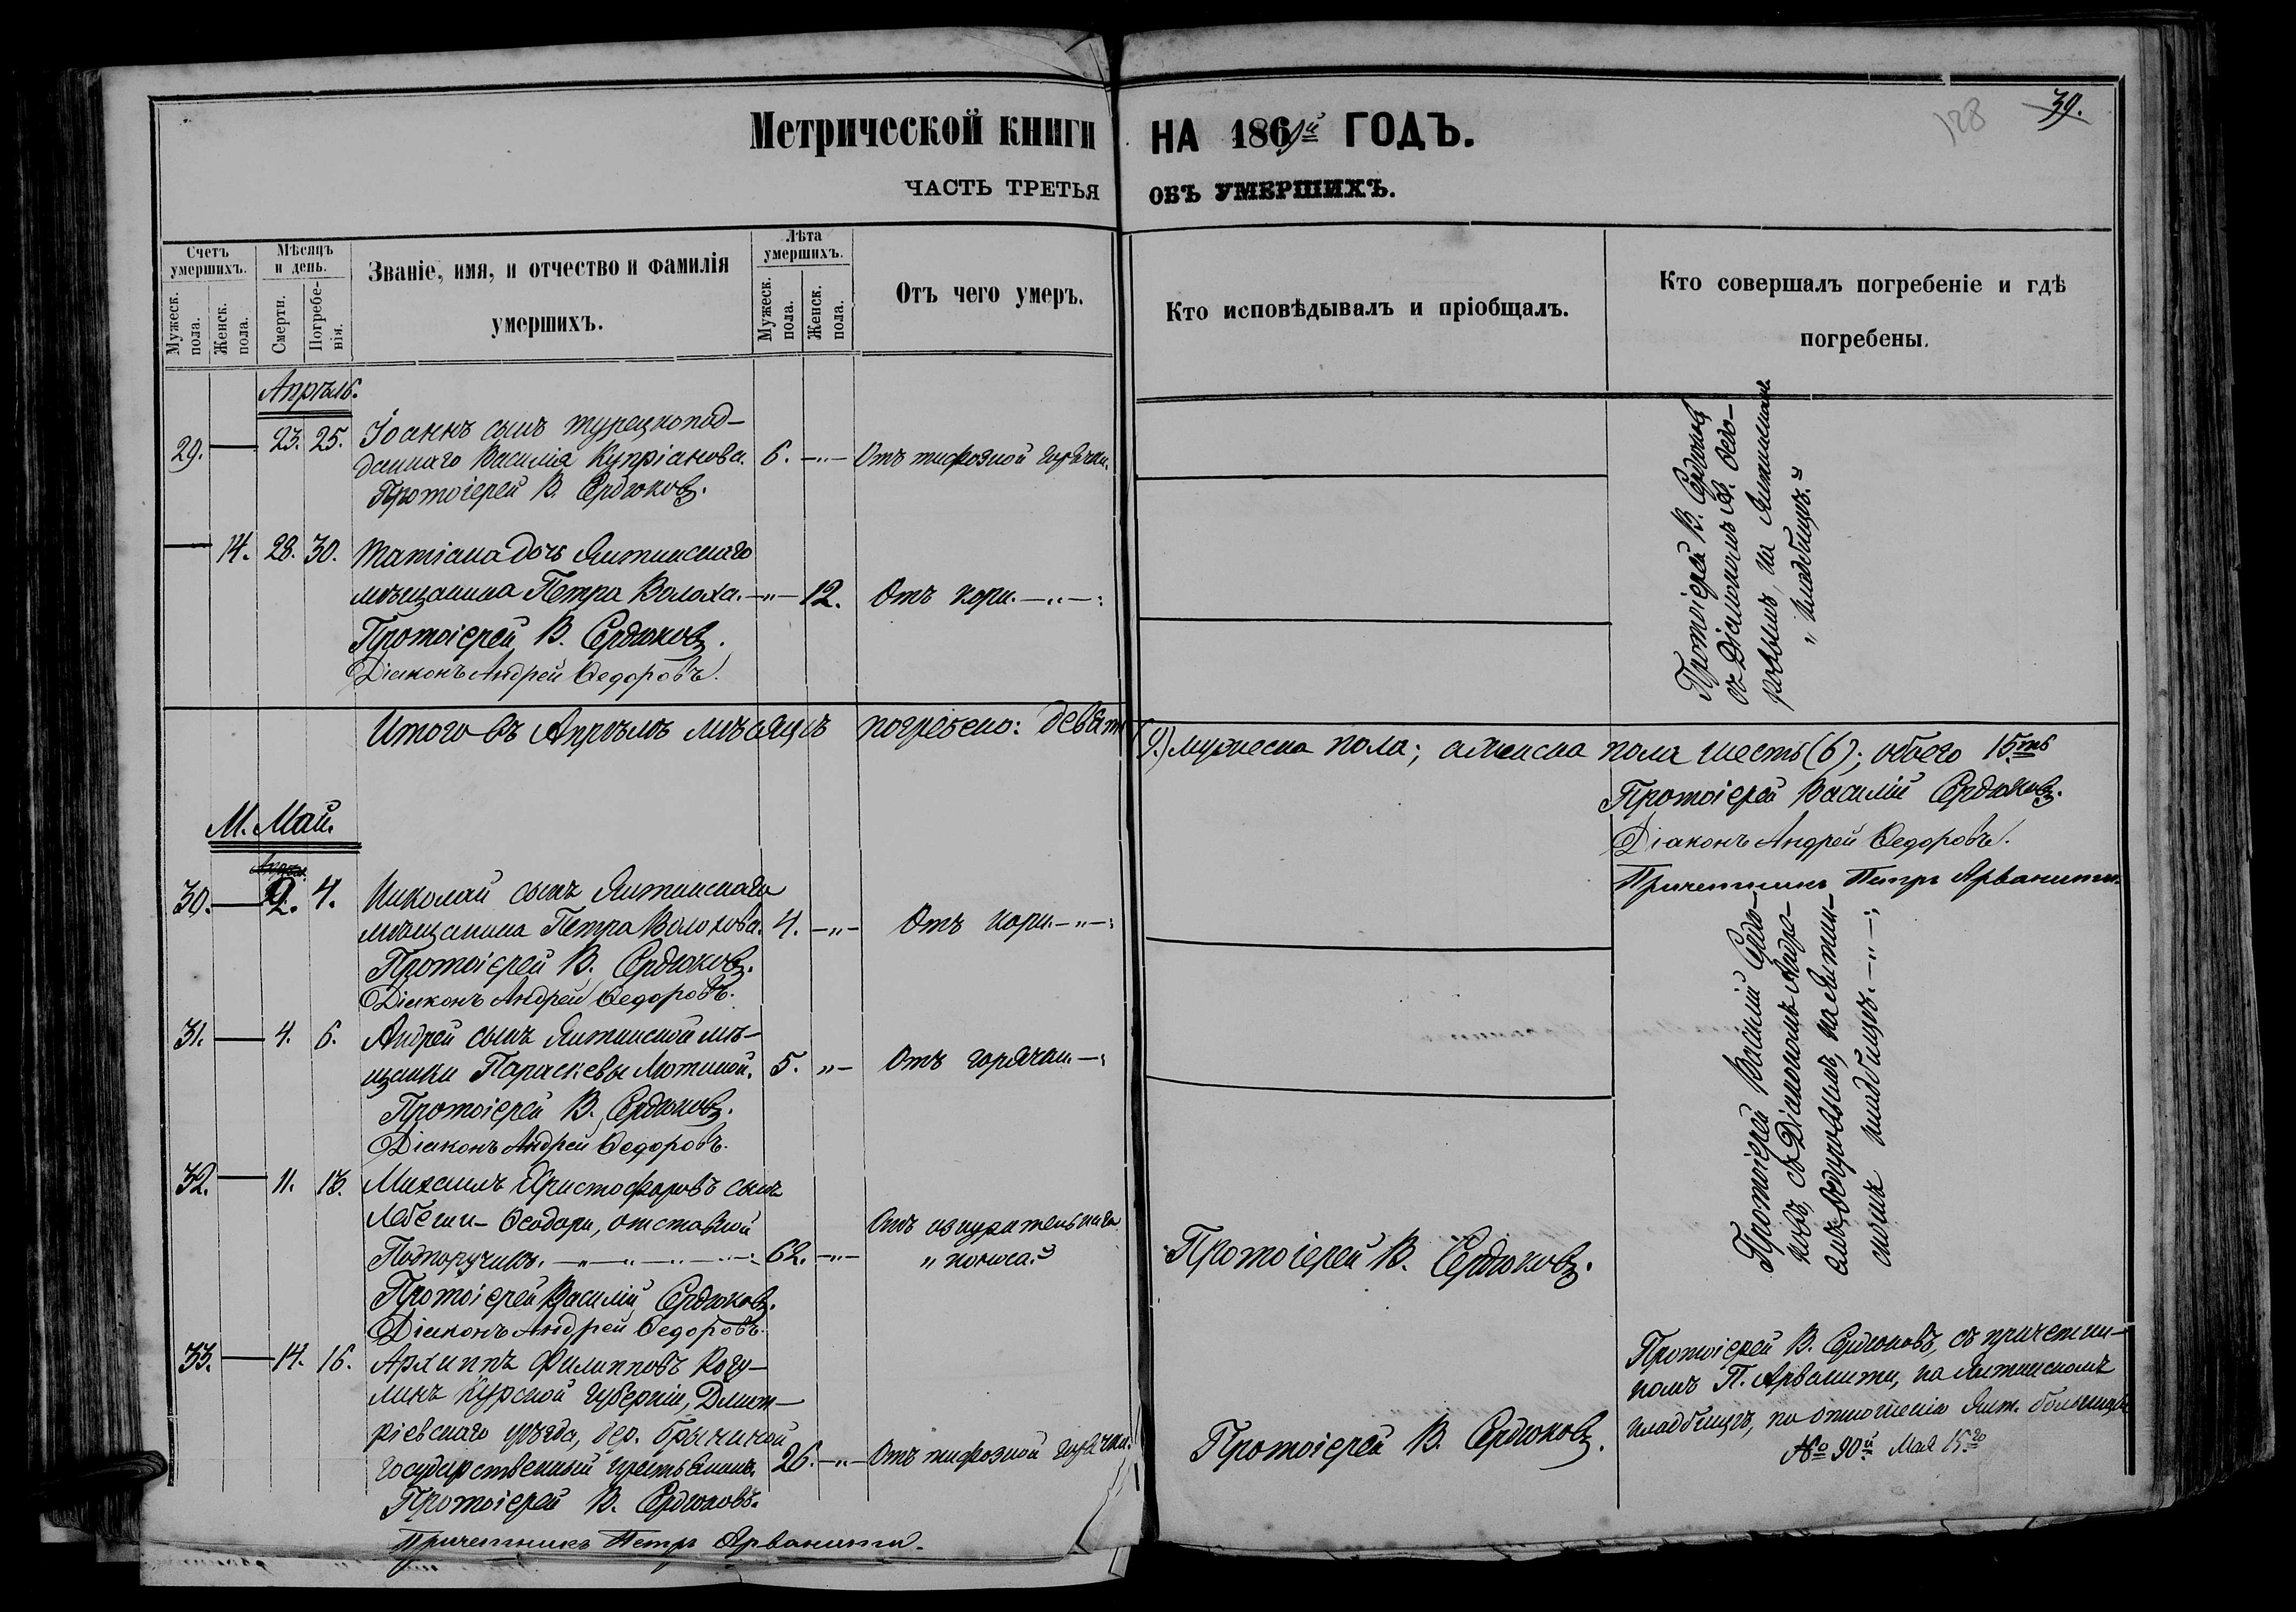 Метрической книги
на 1869й годъ.
128
39.
часть третья
объ умершихъ.
Счетъ умершихъ.
Мужеск. пола.
Женск. пола.
Мѣсяцъ и день.
Смерти.
Погребе-
нія.
Званіе, имя, и отчество и фамилія
умершихъ.
Лѣта умершихъ.
Мужеск. пола.
Женск. пола.
Отъ чего умеръ.
Кто исповѣдывалъ и пріобщалъ.
Кто совершалъ погребеніе и гдѣ
погребены.
Апрѣль.
29. — 23. 25. Іоаннъ сынъ турецкопод-
даннаго Василія Купріанова. 6. —"— Отъ тифозной горячки.
Протоіерей В. Сердюковъ.
— 14. 28. 30. Татіана дочь Ялтинскаго
мѣщанина Петра Волоха. —"— 12. Отъ кори. —"—:
Протоіерей В. Сердюковъ.
Діаконъ Андрей Ѳедоровъ.
Протоіерей В. Сердюковъ
съ Діакономъ А. Ѳедо-
ровымъ, на Ялтинскомъ
„ кладбищѣ."
Итого въ Апрѣлѣ мѣсяцѣ погребено: девять (9.) мужеска пола; а женска пола шесть (6); обоего 15ть
Протоіерей Василій Сердюковъ.
Діаконъ Андрей Ѳедоровъ.
Причетникъ Петръ Арванити.
М. Май.
30. — 2. 4. Николай сынъ Ялтинскаго
мѣщанина Петра Волохова. 4. —"— Отъ кори —"—:
Протоіерей В. Сердюковъ.
Діаконъ Андрей Ѳедоровъ.
31. — 4. 6. Андрей сынъ Ялтинской мѣ-
щанки Параскевы Лютиной. 5. „— Отъ горячки —:
Протоіерей В. Сердюковъ.
Діаконъ Андрей Ѳедоровъ.
32. — 11. 13. Михаилъ Христофоровъ сынъ
Ѳеодори, отставной
Подпоручикъ. —"—"—"—: 62. —"— Отъ изнурительнаго
„ поноса."
Протоіерей Василій Сердюковъ.
Діаконъ Андрей Ѳедоровъ.
Протоіерей В. Сердюковъ.
Протоіерей Василій Сердю-
ковъ, съ Діакономъ Андре-
емъ Ѳедоровымъ, на Ялтин-
скомъ кладбищѣ. —"—:
33. — 14. 16. Архиппъ Филипповъ
Курской губерніи, Дмит-
ріевскаго уѣзда, дер.
государственный крестьянинъ. 26. —"— Отъ тифозной горячки.
Протоіерей В. Сердюковъ.
Причетникъ Петръ Арванити.
Протоіерей В. Сердюковъ.
Протоіерей В. Сердюковъ, съ причетни-
комъ П. Арванити, на Ялтинскомъ
кладбищѣ, по отношенію Ялт. больницы
№ 90й Мая 15го